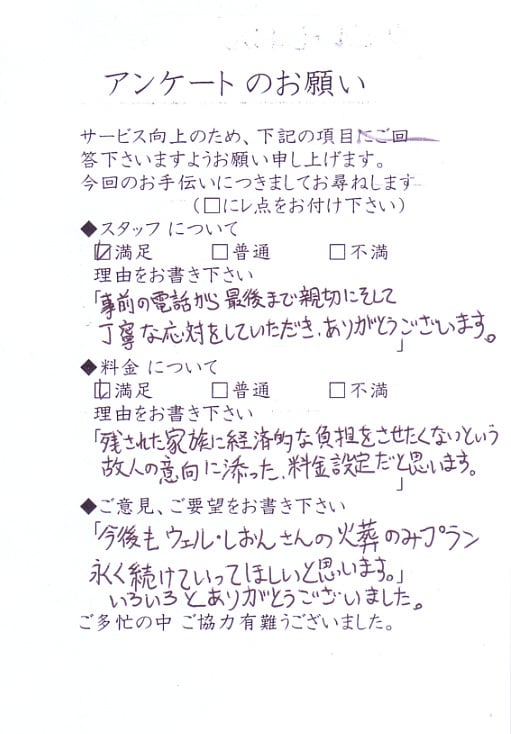 アンケート のお願い
サービス向上のため、下記の項目にご回
答下さいますようお願い申し上げます。
今回のお手伝いにつきましてお尋ねします
(□にレ点をお付け下さい)
◆スタッフ について
☑満足 □普通 □不満
理由をお書き下さい
「事前の電話から最後まで親切にそして
丁寧な応対をしていただき、ありがとうございます。」
◆料金 について
☑満足 □普通 □不満
理由をお書き下さい
「残された家族に経済的な負担をさせたくないという
故人の意向に添った、料金設定だと思います。」
◆ご意見、ご要望をお書き下さい
「今後も ウェル・しおんさんの火葬のみプラン
永く続けていってほしいと思います。」
いろいろとありがとうございました。
ご多忙の中 ご協力有難うございました。